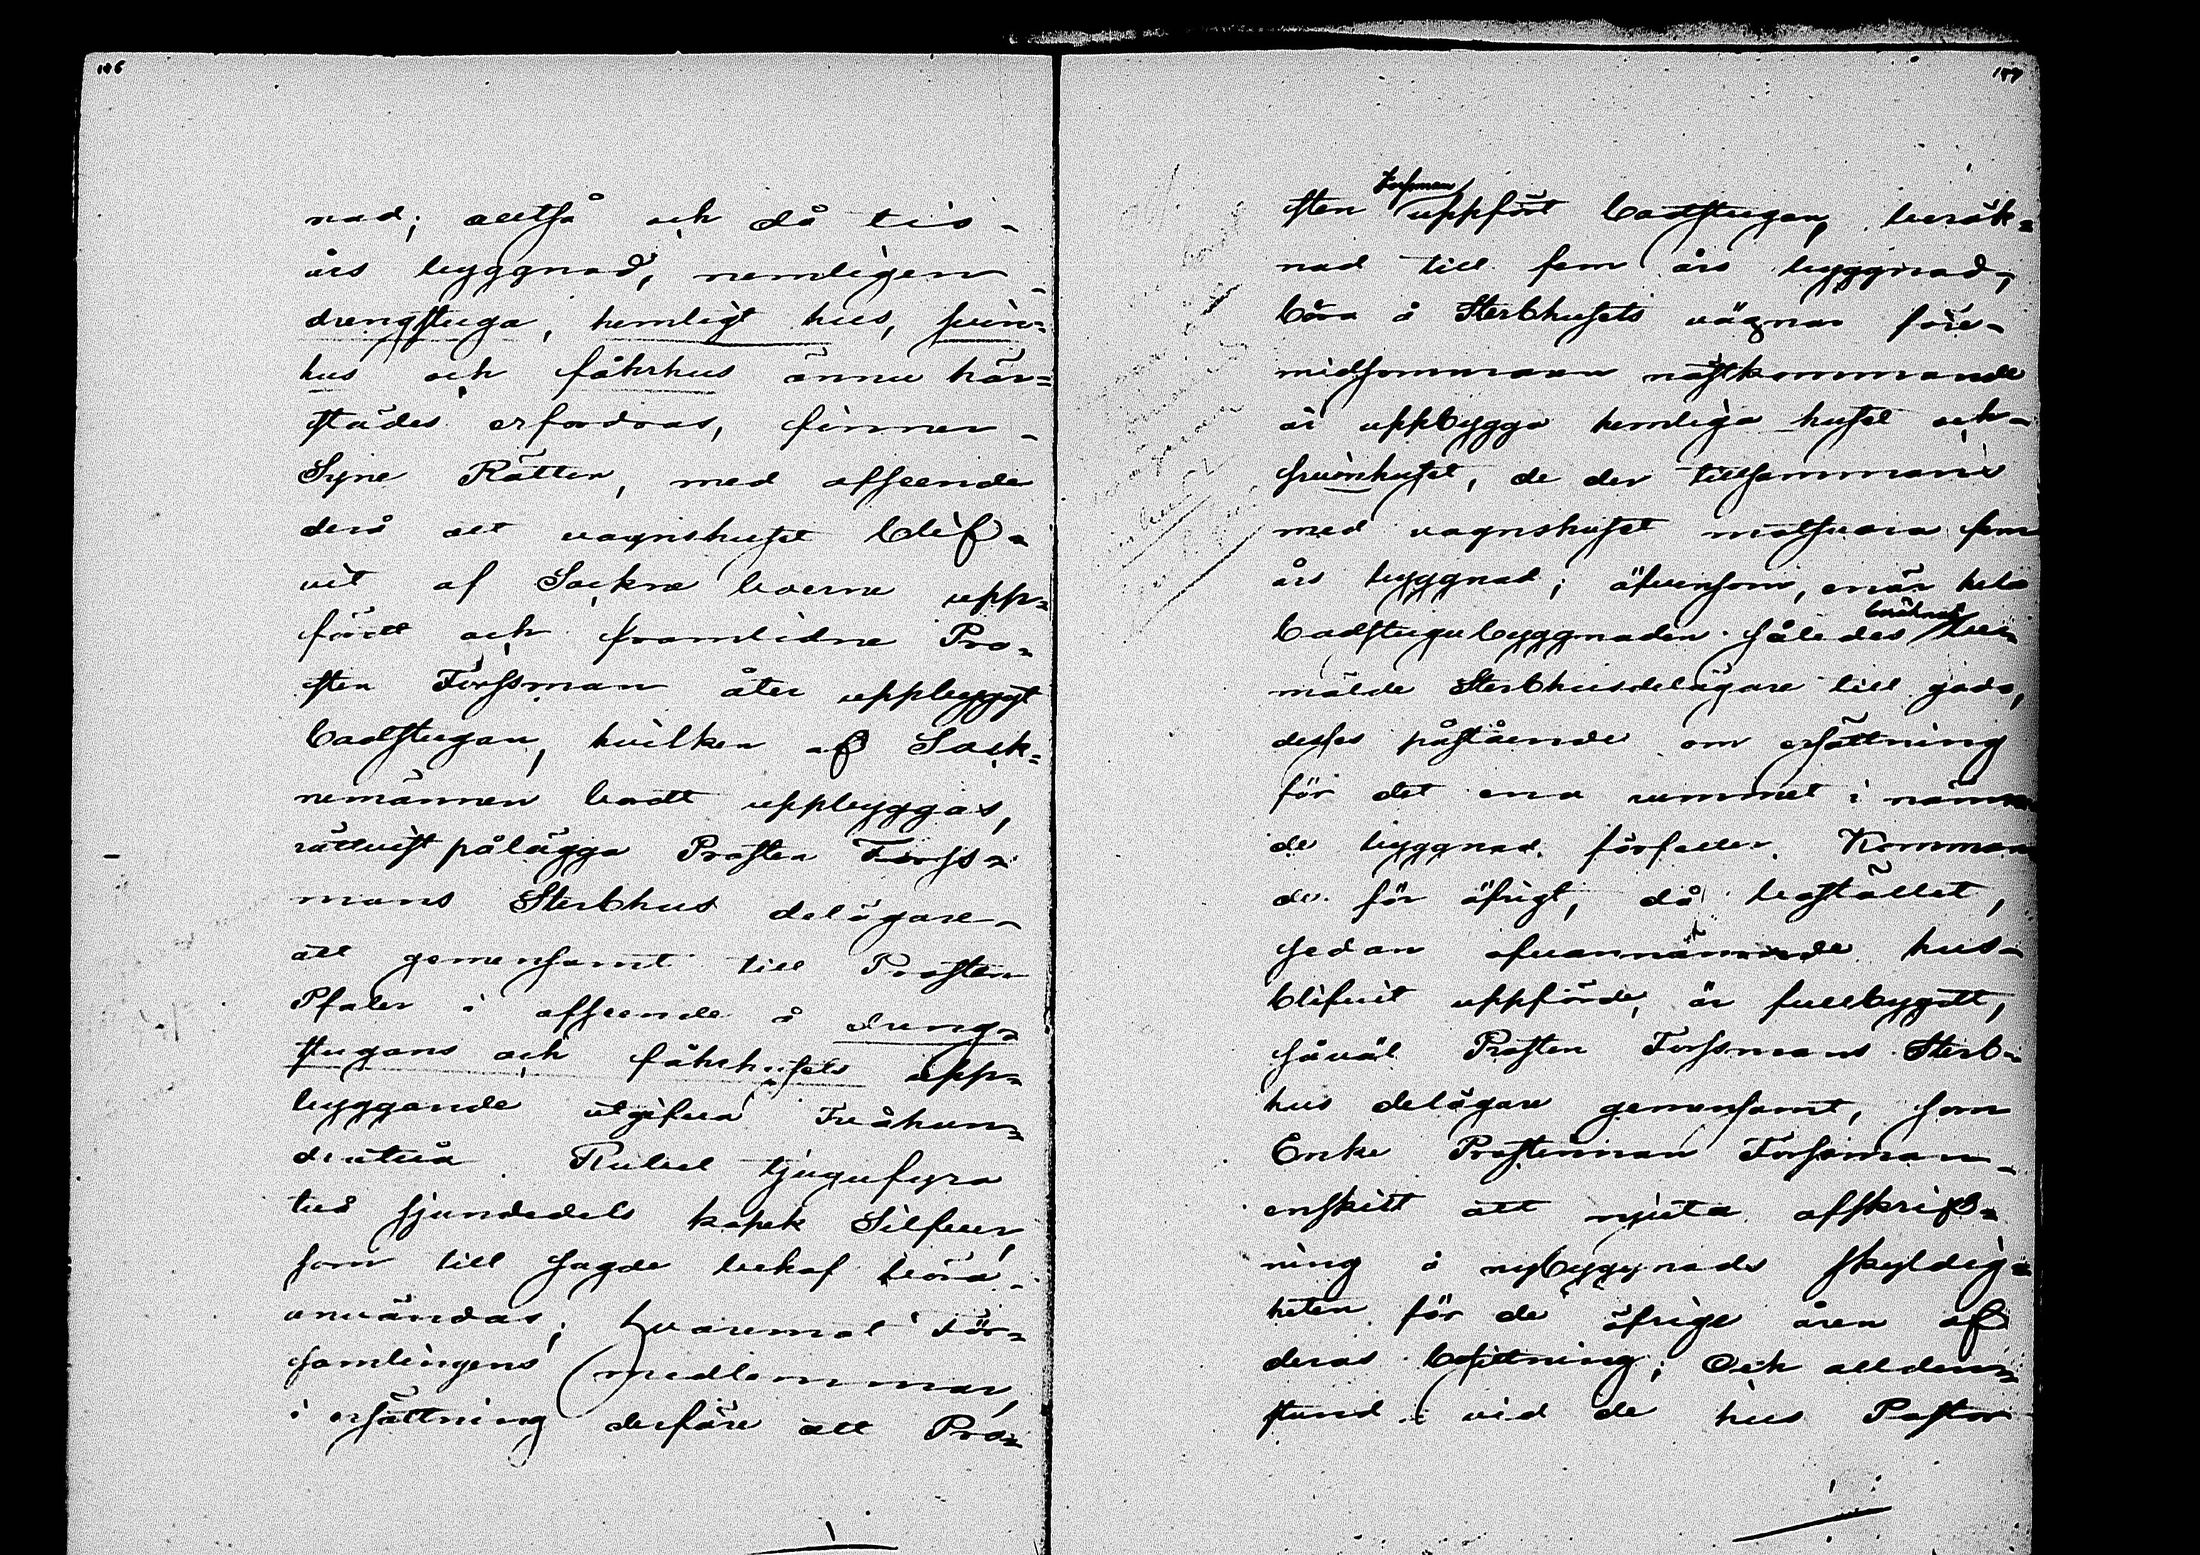 nad; alltså och då tio-
års byggnad, nemligen
drengstuga, hemligt hus, svin=
hus och fåhrhus ännu här=
städes erfordras, finner
Syne Rätten, med afseende
derå att vagnshuset blif-
vit af Sockne boerne upp=
fördt och framlidne Pro-
sten Forssman åter uppbyggt
badstugan, hvilken af Sock=
nemännen bordt uppbyggas,
rättvist pålägga Prosten Forss=
mans Sterbhus delägare
att gemensamt till Prosten
Pfaler i afseende å dreng=
stugans och fåhrhusets upp=
byggande utgifva Tvåhun=
dratvå Rubel tjugufyra
två sjundedels kopek Silfver,
som till sagde behof böra
användas; hvaremot För=
samlingens medlemmar,
i ersättning derföre att Pro=
197
Forssman
sten uppfört badstugan, beräk=
nad till fem års byggnad,
böra å Sterbhusets vägnar före
midsommaren nästkommande
år uppbygga hemliga huset och
svinhuset, de der tillsammans
med vagnshuset motsvara fem
års byggnad; äfvensom, enär hela
badstugubyggnaden således
mälde Sterbhusdelägare till godo,
desses påstående om ersättning
för det ena rummet i nämn
de byggnad förfaller. Komman
de för öfrigt, då bostället,
sedan ofvannämnde hus
blifvit uppförde, är fullbygdt,
såväl Prosten Forssmans Sterb=
hus delägare gemensamt, som
Enke Prostinnan Forssman
enskilt att njuta afskrif=
ning å nybyggnads skyldig=
heten för de öfrige åren af
deras besittning; Och allden=
stund vid de hus Pastor